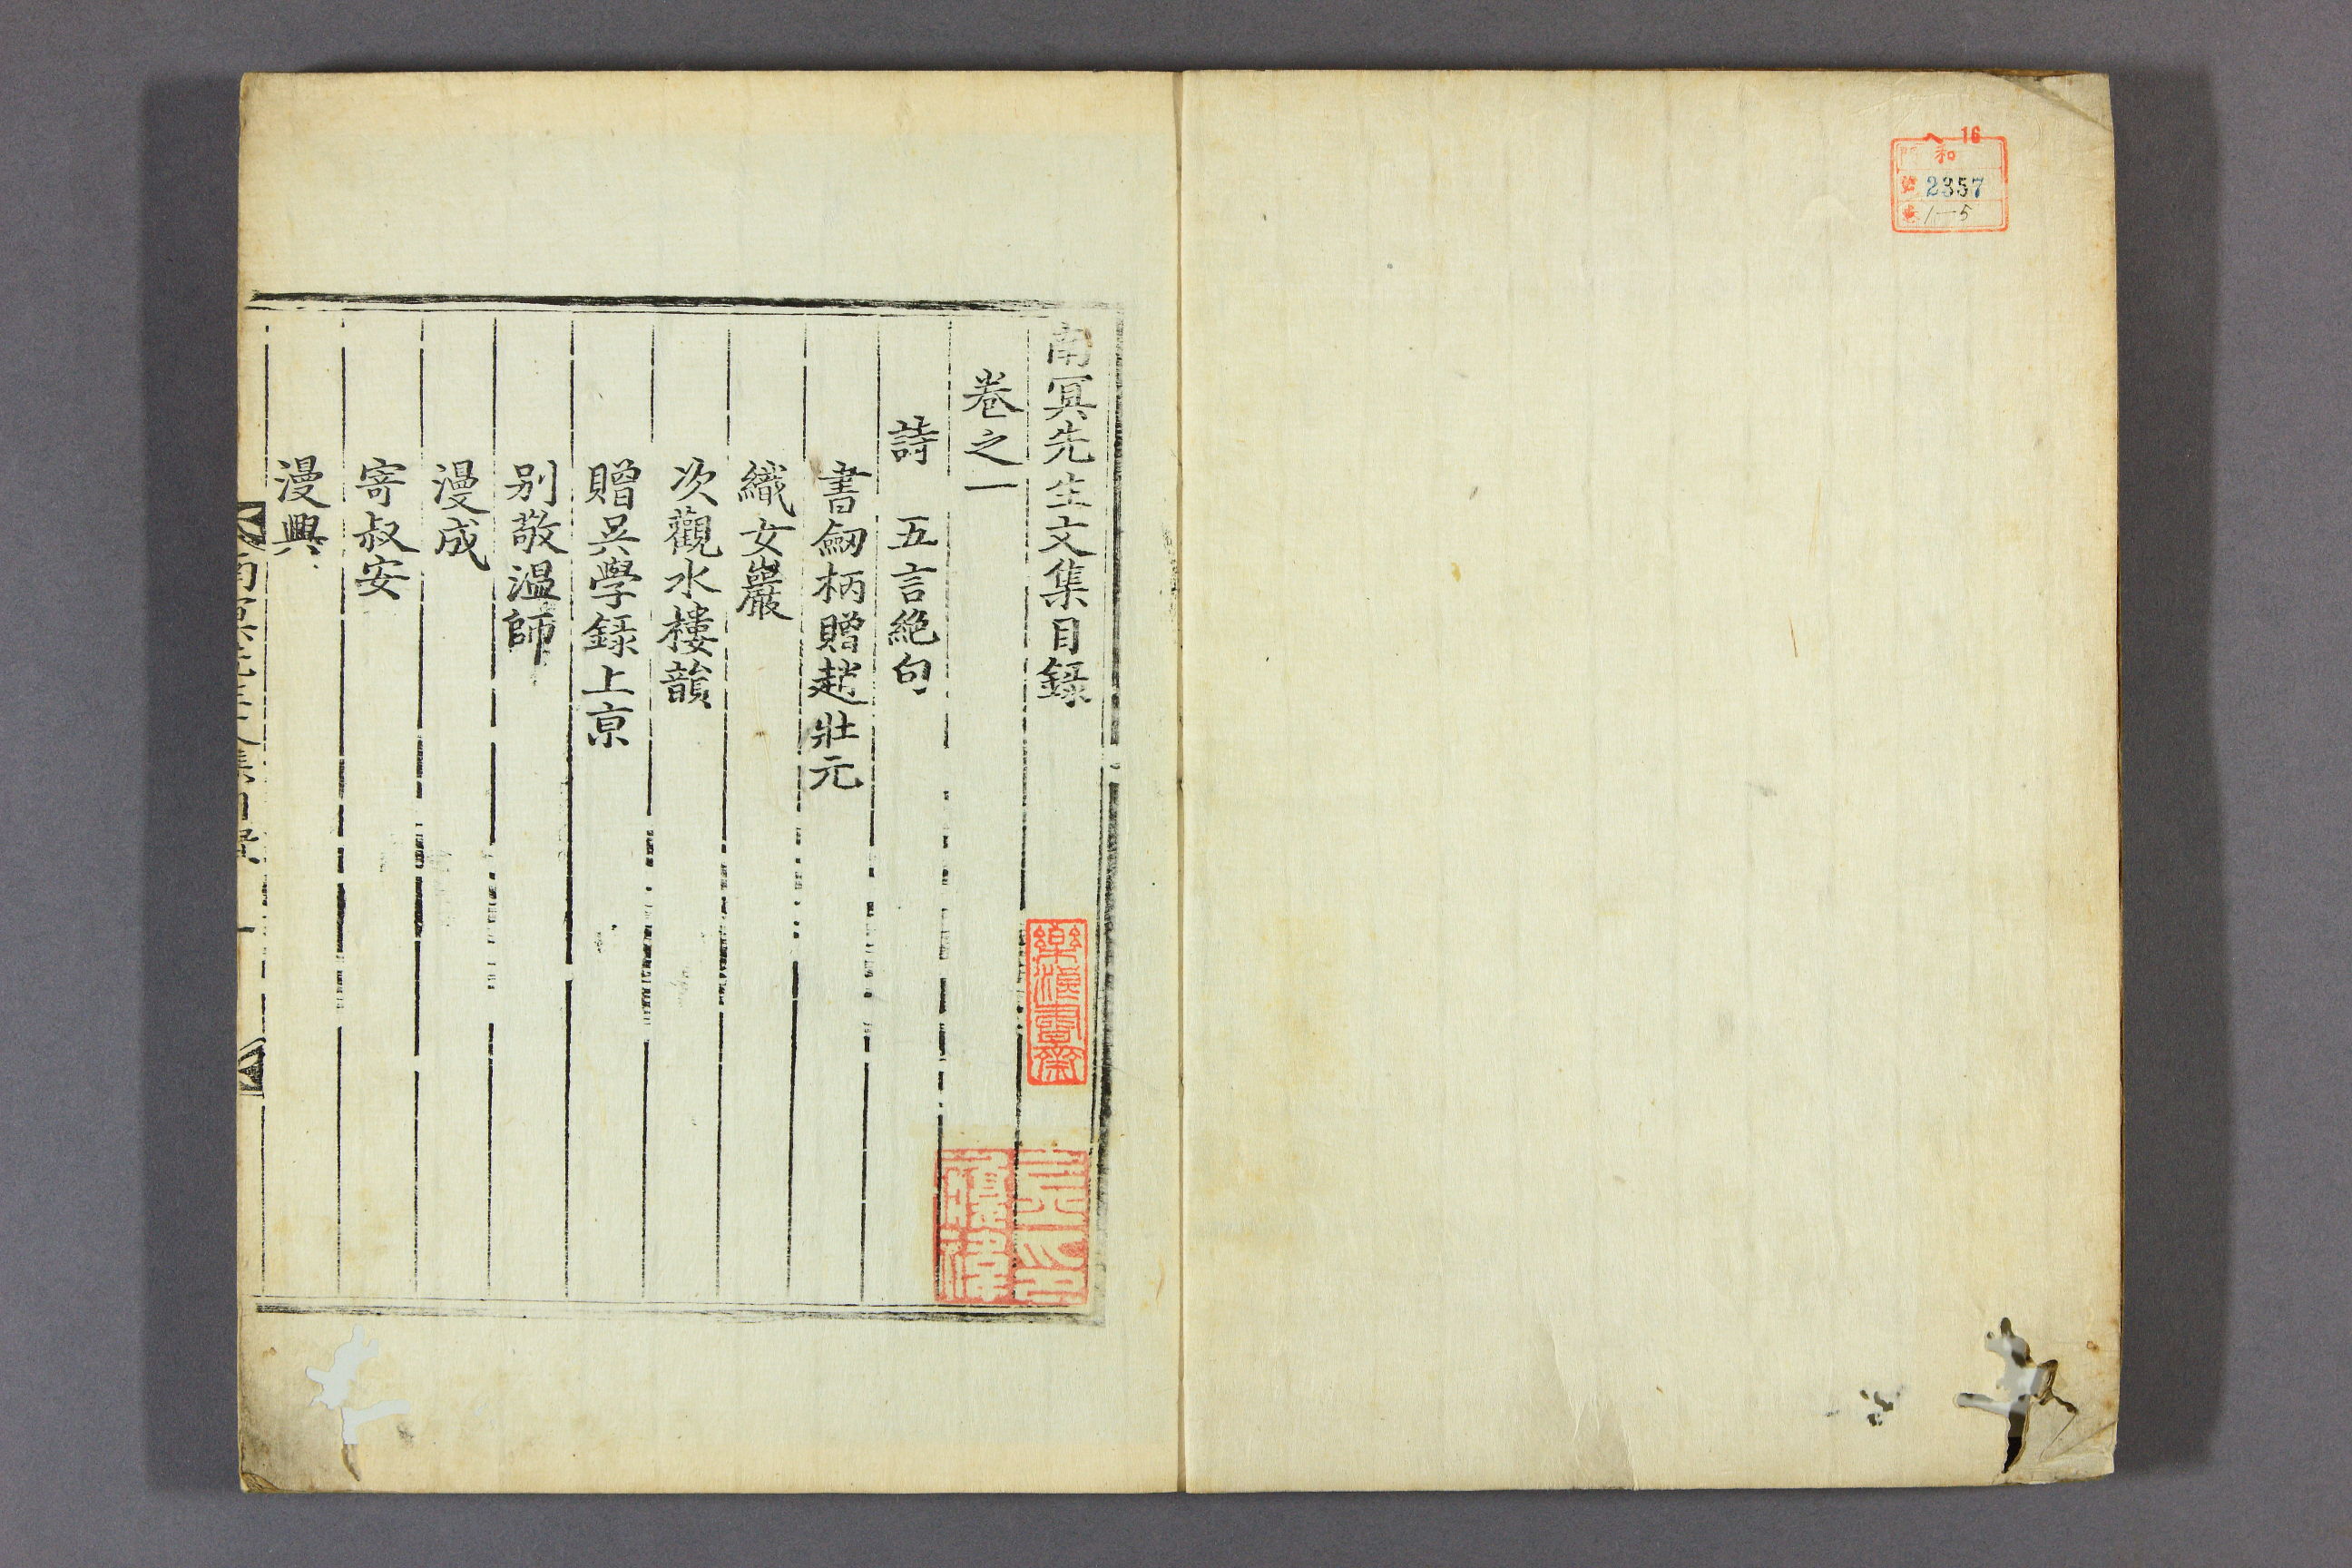 へ 16
門 和
號 2357
卷 1-5
南冥先生文集目録
卷之一
詩 五言絶句
書劒柄贈趙壯元
織女巖
次觀水樓韻
贈吳學録上京
別敬温師
漫成
寄叔安
漫興
南冥先生文集目録 一
樂漢書齋